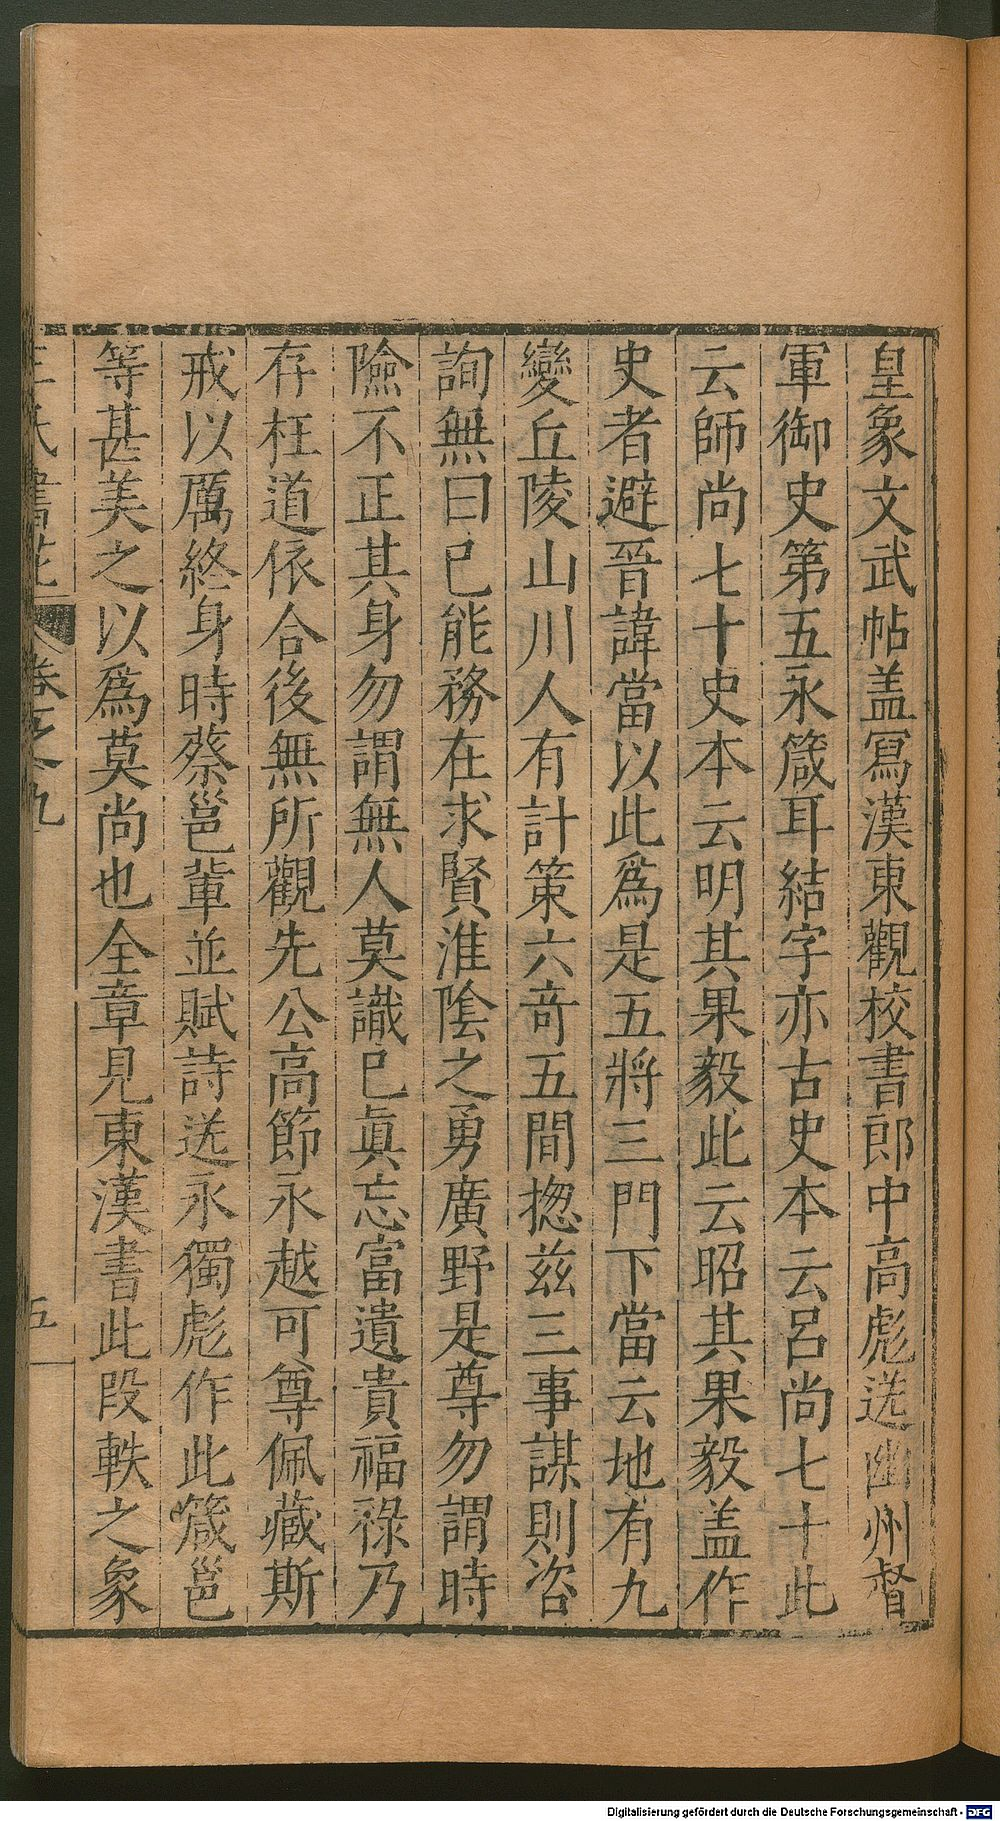 皇象文武帖盖寫漢東觀校書郎中高彪送幽州督
軍御史第五永箴耳結字亦古史本云呂尚七十此
云師尚七十史本云明其果毅此云昭其果毅盖作
史者避晉諱當以此爲是五將三門下當云地有九
變丘陵山川人有計策六竒五間揔兹三事謀則咨
詢無曰已能務在求賢淮陰之勇廣野是尊勿謂時
險不正其身勿謂無人莫識已眞忘富遺貴福祿乃
存枉道依合後無所觀先公高節永越可尊佩藏斯
戒以厲終身時蔡邕軰並賦詩送永獨彪作此箴邕
等甚美之以爲莫尚也全章見東漢書此段軼之象
王氏書苑 卷之九 五
Digitalisierung gefördert durch die Deutsche Forschungsgemeinschaft - DFG